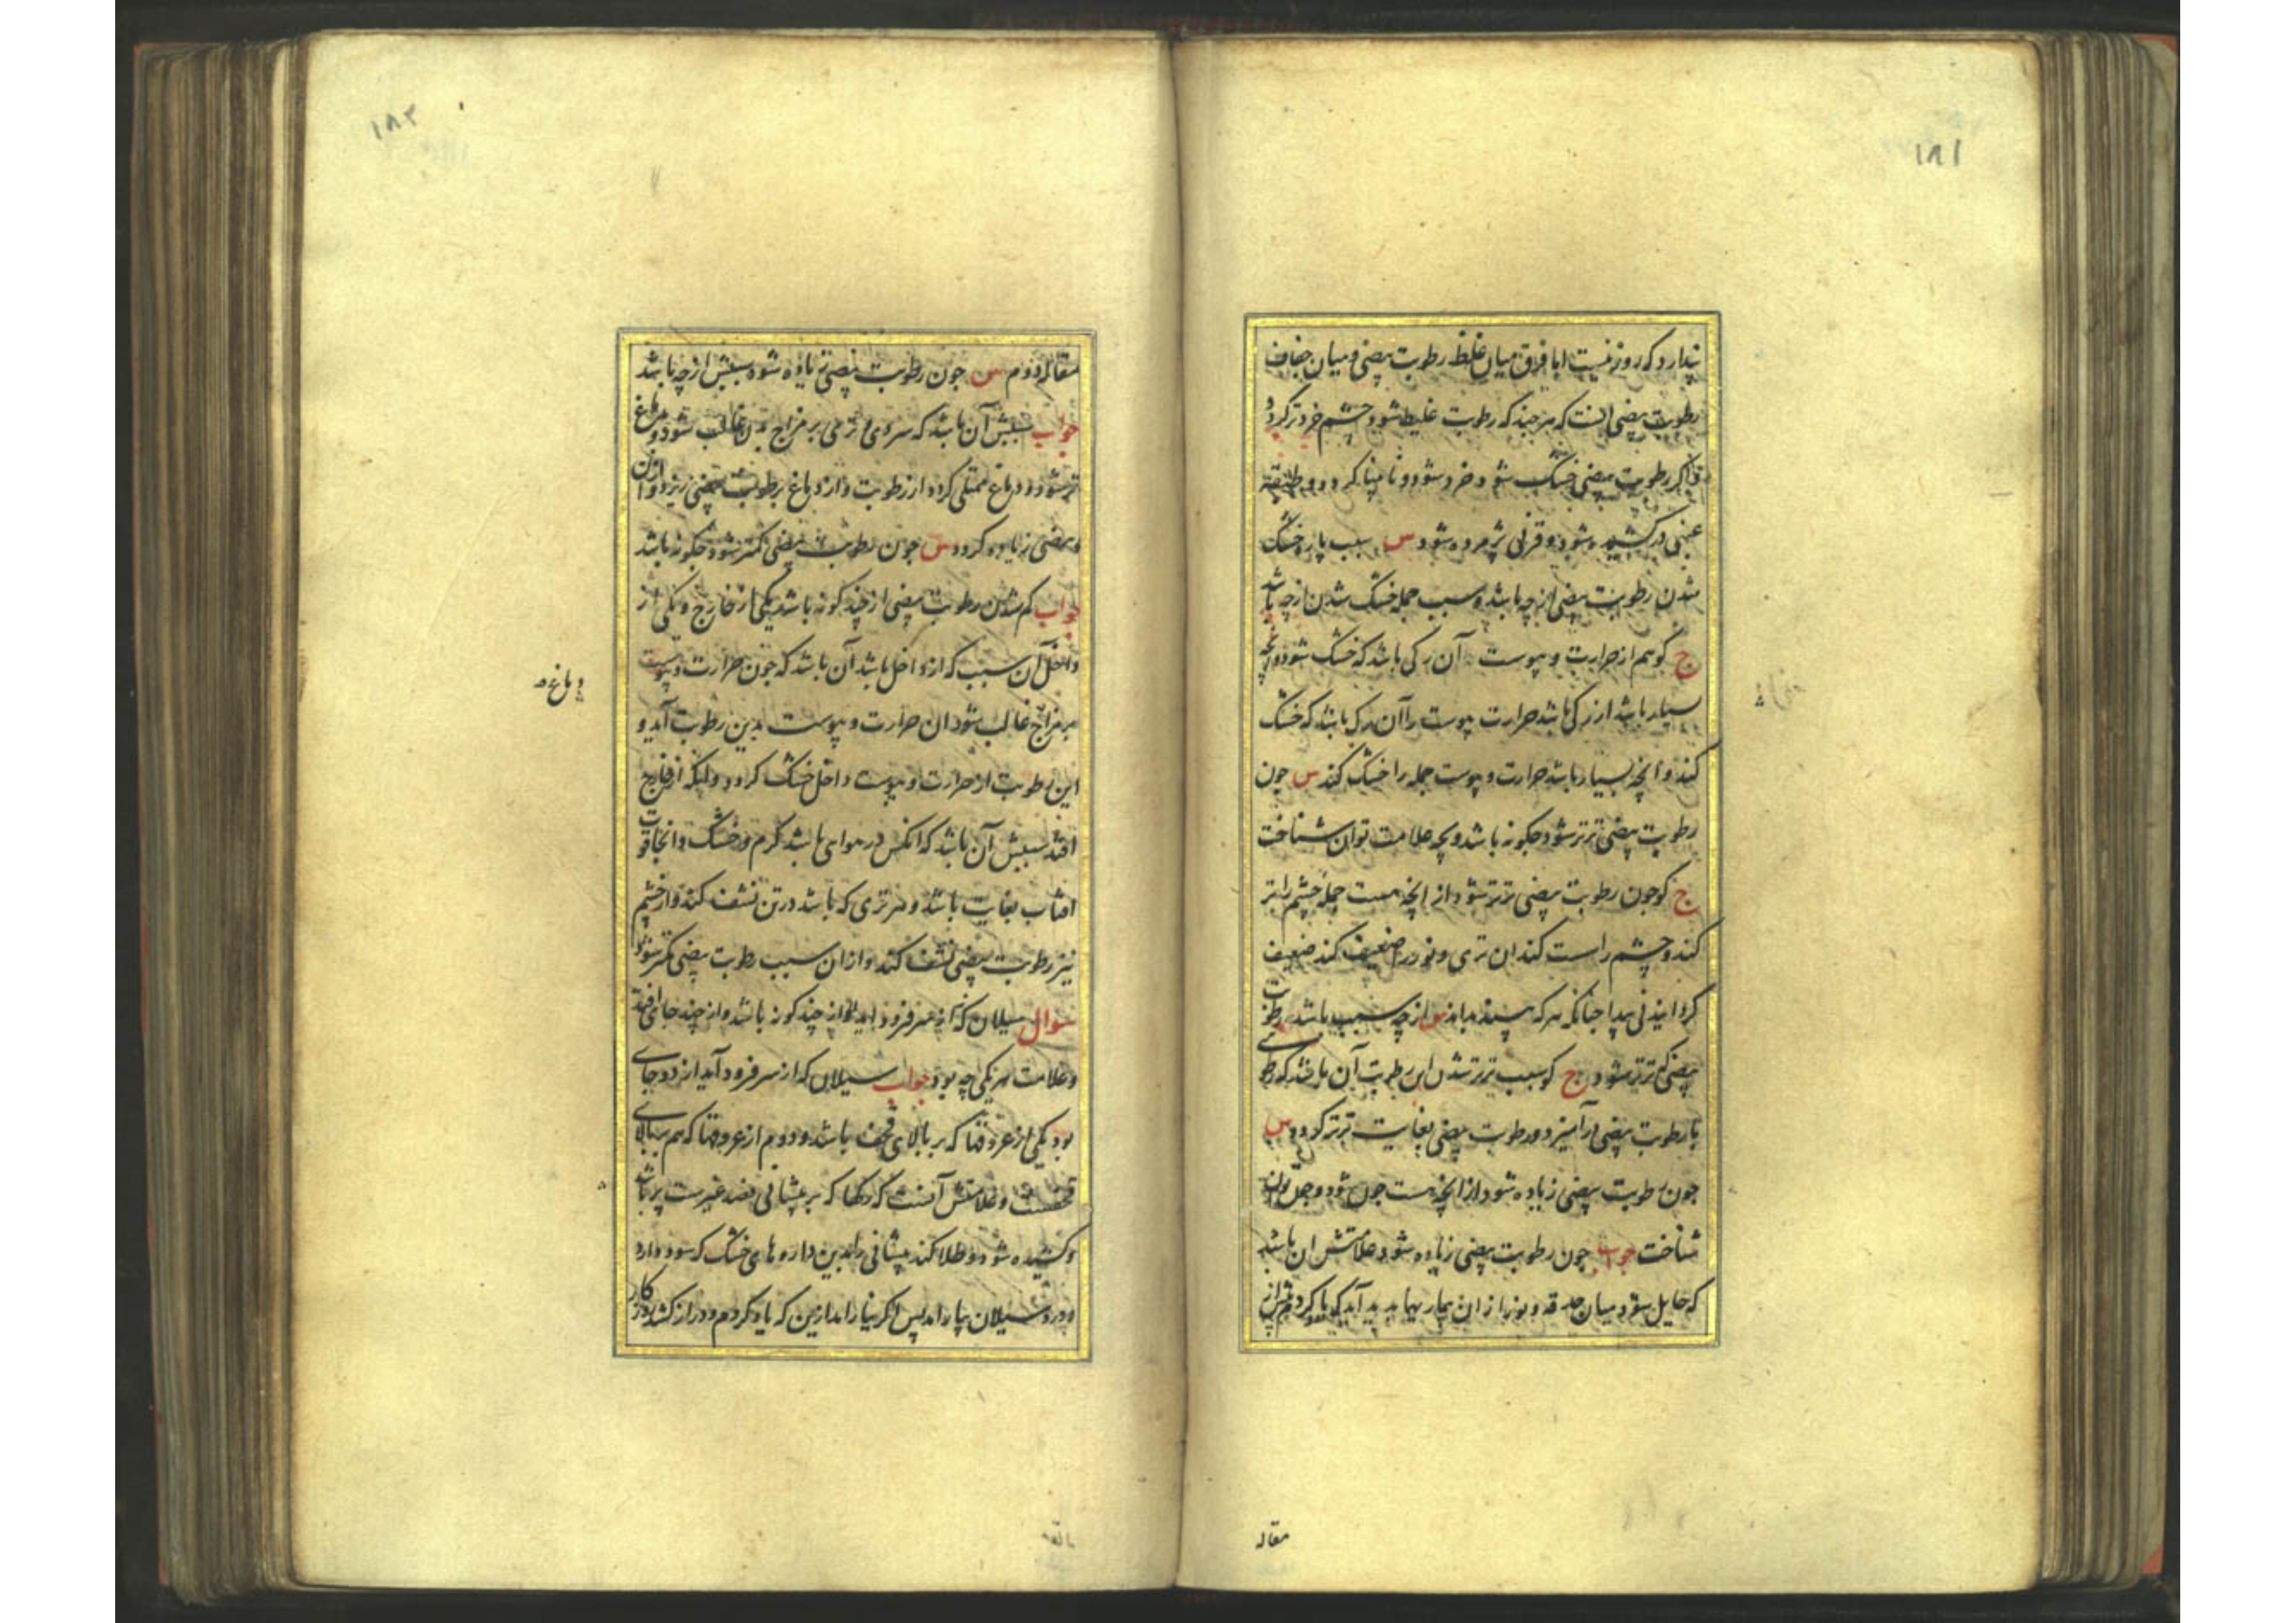 ۱۸۱
پندارد که روز نیست اما فرق میان غلظ رطوبت بیضی و میان جفاف
رطوبت بیضی انست که هر چند که رطوبت غلیظ شود چشم خردتر کردد
و اکر رطوبت بیضی خشک شود خرد شود و نابینا کردد و طبقه
عنبی در کشیده شود و قرنی پژمرده شود س سبب پاره خشک
شدن رطوبت بیضی از چه باشد و سبب جمله خشک شدن از چه باشد
ج کوییم از حرارت و یبوست آن رکی باشد که خشک شود و انچه
بسیار باشد از رکی باشد حرارت یبوست را آن رکی باشد که خشک
کند و انچه بسیار باشد حرارت و یبوست جمله را خشک کند س چون
رطوبت بیضی تر تر شود چکونه باشد و بچه علامت توان شناخت
ج کو چون رطوبت بیضی تر تر شود از انچه هست جمله چشم را تر
کند و چشم را سست کند ان تری و نور را ضعیف کند ضعیف
کردانیدنی پیدا چنانکه هر که بیند بداند س از چه سبب باشد رطوبت
بیضی که تر تر شود ج کو سبب تر تر شدن این رطوبت آن باشد که رطوبتی
با رطوبت بیضی درآمیزد و رطوبت بیضی بغایت تر تر کردد س
چون رطوبت بیضی زیاده شود از انچه هست چون شود و چون توان
شناخت جواب چون رطوبت بیضی زیاده شود علامتش ان باشد
که حایل شود میان حدقه و نور از ان بیماریها پدید آید که یاد کردیم از
مقاله
۱۸۲
مقاله دوم س چون رطوبت بیضی زیاده شود سببش از چه باشد
جواب سببش آن باشد که سردی و نرمی بر مزاج غالب شود و دماغ
تر شود و دماغ ممتلی کردد از رطوبت و از دماغ برطوبت بیضی ریزد و از ان
بیضی زیاده کردد س چون رطوبت بیضی کمتر شود چکونه باشد
جواب کم شدن رطوبت بیضی از چند کونه باشد یکی از خارج و یکی از
داخل ان سبب که از داخل باشد آن باشد که چون حرارت و یبوست
بر مزاج غالب شود ان حرارت و یبوست بدین رطوبت آید و
دماغ
این رطوبت از حرارت و یبوست داخل خشک کردد و لیکن از خارج
افتد سببش آن باشد که انکس در هوایی باشد کرم و خشک و انجا قوت
افتاب بغایت باشد و هر تری که باشد در تن نشف کند و از چشم
نیز رطوبت بیضی نشف کند و از ان سبب رطوبت بیضی کمتر شود
سوال سیلان که از سر فرود اید از چند کونه باشد و از چند جای افتد
و علامت هر یکی چه بود جواب سیلان که از سر فرود آید از دو جای
بود یکی از عروقها که بر بالای قحف باشد و دوم از عروقها که هم ببالای
قحفست و علامتش آنست که رکها که بر پیشانی پر باشد
و کشیده شود و طلا کند پیشانی را بدین داروهای خشک که سود دارد
و درد سیلان بیارامد پس اکر نیارامد ازین که یاد کردم و دراز کشد کار